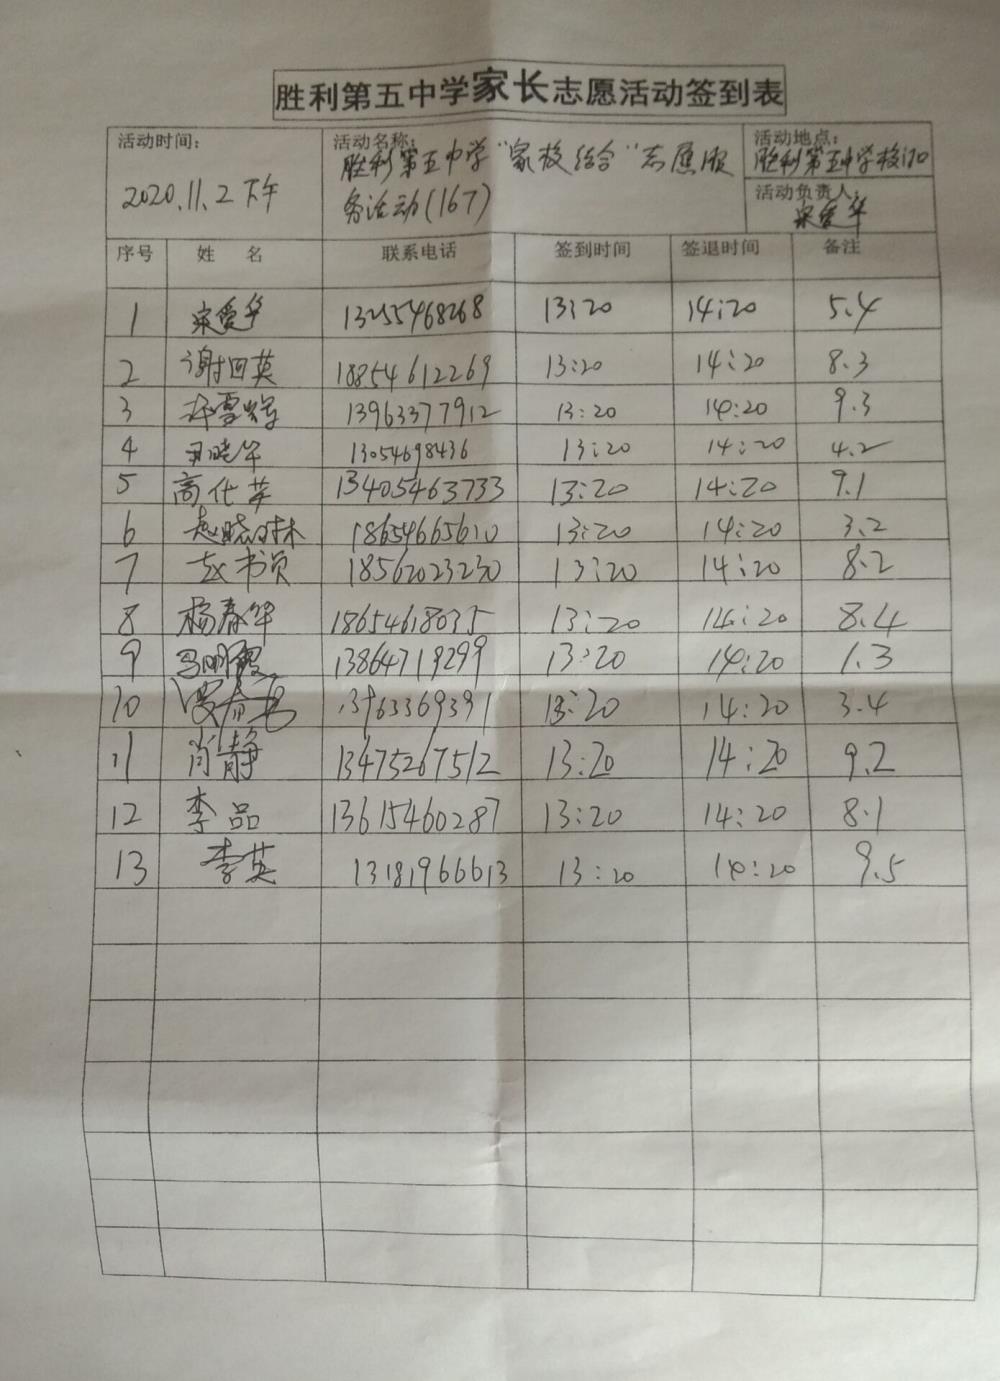 胜利第五中学家长志愿活动签到表
活动时间: 活动名称: 活动地点:
2020.11.2下午 胜利第五中学“家校结合”志愿服 胜利第五中学校门口
务活动(167) 活动负责人: 宋爱华
序号 姓 名 联系电话 签到时间 签退时间 备注
1 宋爱华 13255468268 13:20 14:20 5.4
2 谢回英 18854612269 13:20 14:20 8.3
3 13963377912 13:20 14:20 9.3
4 晓华 13054698436 13:20 14:20 4.2
5 高仕英 13405463733 13:20 14:20 9.1
6 赵晓 18654665610 13:20 14:20 3.2
7 书贞 18562023230 13:20 14:20 8.2
8 杨春华 18654618035 13:20 14:20 8.4
9 马明霞 13864719299 13:20 14:20 1.3
10 13963369391 13:20 14:20 3.4
11 肖静 13475267512 13:20 14:20 9.2
12 李品 13615460287 13:20 14:20 8.1
13 李英 13181966613 13:20 14:20 9.5